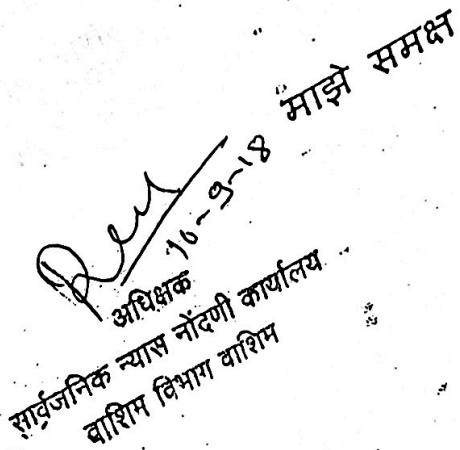 माझे समक्ष
10-9-18
अधिक्षक
सार्वजनिक न्यास नोंदणी कार्यालय
वाशिम विभाग वाशिम